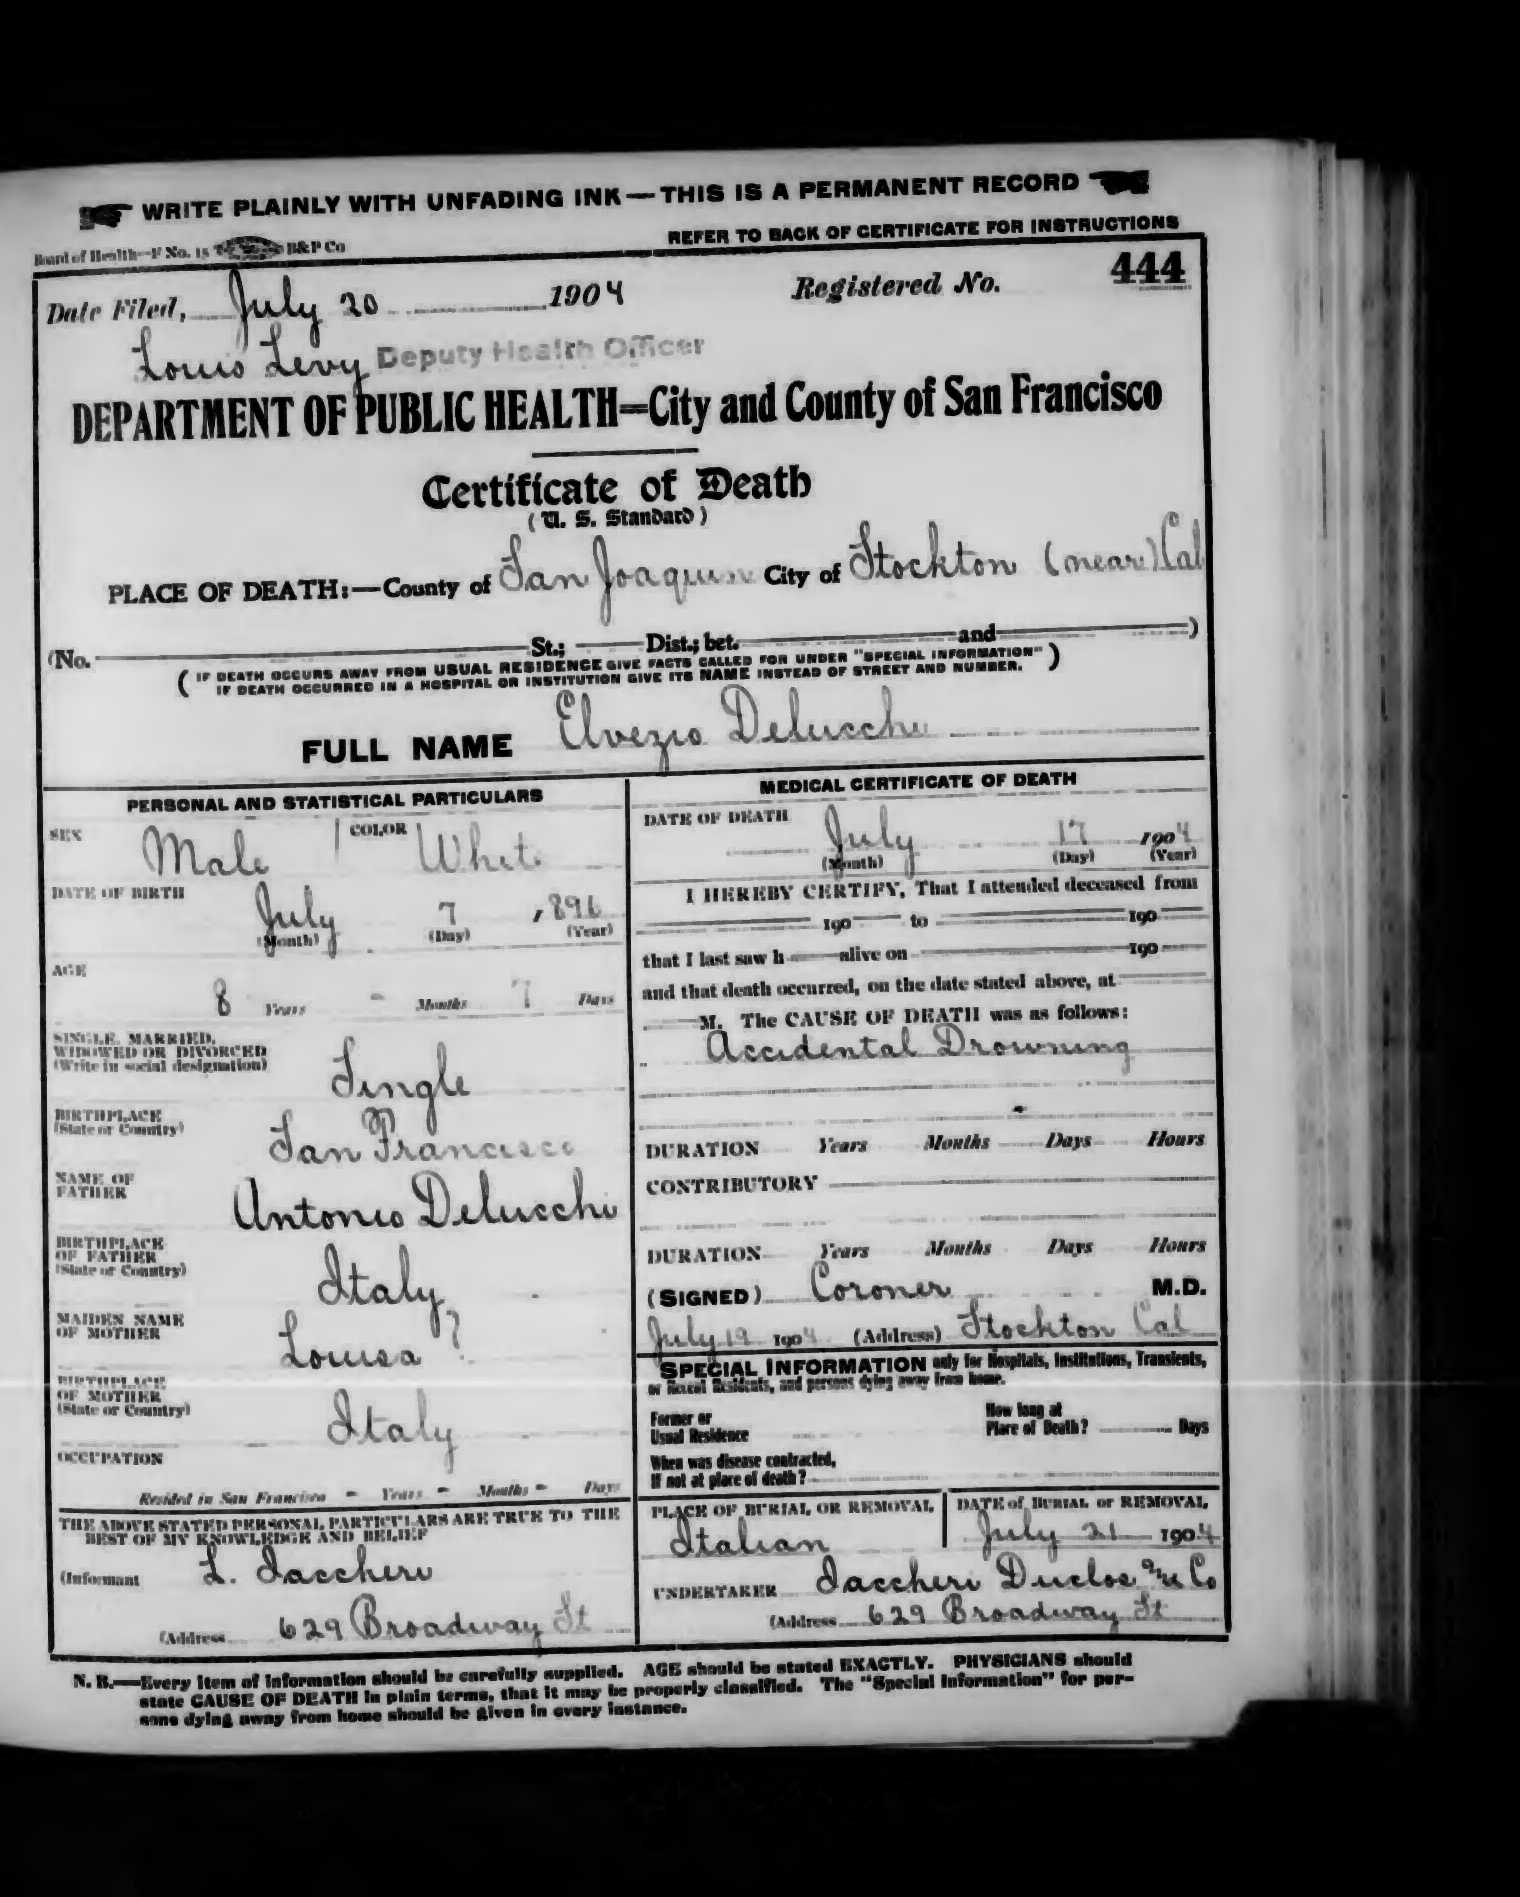 WRITE PLAINLY WITH UNFADING INK—THIS IS A PERMANENT RECORD
Board of Health—F No. 15 B&P Co
REFER TO BACK OF CERTIFICATE FOR INSTRUCTIONS
Date Filed, July 20 1904 Registered No. 444
Louis Levy Deputy Health Officer
DEPARTMENT OF PUBLIC HEALTH=City and County of San Francisco
Certificate of Death
(U. S. Standard)
PLACE OF DEATH:—County of San Joaquin City of Stockton (near) Cal
(No. St.; Dist.; bet. and )
(IF DEATH OCCURS AWAY FROM USUAL RESIDENCE GIVE FACTS CALLED FOR UNDER "SPECIAL INFORMATION"
IF DEATH OCCURRED IN A HOSPITAL OR INSTITUTION GIVE ITS NAME INSTEAD OF STREET AND NUMBER.)
FULL NAME Elvezio Delucchi
PERSONAL AND STATISTICAL PARTICULARS
SEX Male COLOR White
DATE OF BIRTH
July 7 , 896
(Month) (Day) (Year)
AGE
8 Years - Months 7 Days
SINGLE, MARRIED,
WIDOWED OR DIVORCED
(Write in social designation)
Single
BIRTHPLACE
(State or Country)
San Francisco
NAME OF
FATHER
Antonio Delucchi
BIRTHPLACE
OF FATHER
(State or Country)
Italy
MAIDEN NAME
OF MOTHER
Louisa ?
BIRTHPLACE
OF MOTHER
(State or Country)
Italy
OCCUPATION
Resided in San Francisco - Years - Months - Days
THE ABOVE STATED PERSONAL PARTICULARS ARE TRUE TO THE
BEST OF MY KNOWLEDGE AND BELIEF
(Informant L. Iaccheri
(Address 629 Broadway St
MEDICAL CERTIFICATE OF DEATH
DATE OF DEATH
July 17 1904
(Month) (Day) (Year)
I HEREBY CERTIFY, That I attended deceased from
190 to 190
that I last saw h alive on 190
and that death occurred, on the date stated above, at
M. The CAUSE OF DEATH was as follows:
Accidental Drowning
DURATION Years Months Days Hours
CONTRIBUTORY
DURATION Years Months Days Hours
(SIGNED) Coroner M.D.
July 19 1904 (Address) Stockton Cal
SPECIAL INFORMATION only for Hospitals, Institutions, Transients,
or Recent Residents, and persons dying away from home.
Former or
Usual Residence
How long at
Place of Death? Days
When was disease contracted,
If not at place of death?
PLACE OF BURIAL OR REMOVAL
Italian
DATE of BURIAL or REMOVAL
July 21 1904
UNDERTAKER Iaccheri Duclos & Co
(Address 629 Broadway St
N. B.—Every item of information should be carefully supplied. AGE should be stated EXACTLY. PHYSICIANS should
state CAUSE OF DEATH in plain terms, that it may be properly classified. The "Special Information" for per-
sons dying away from home should be given in every instance.